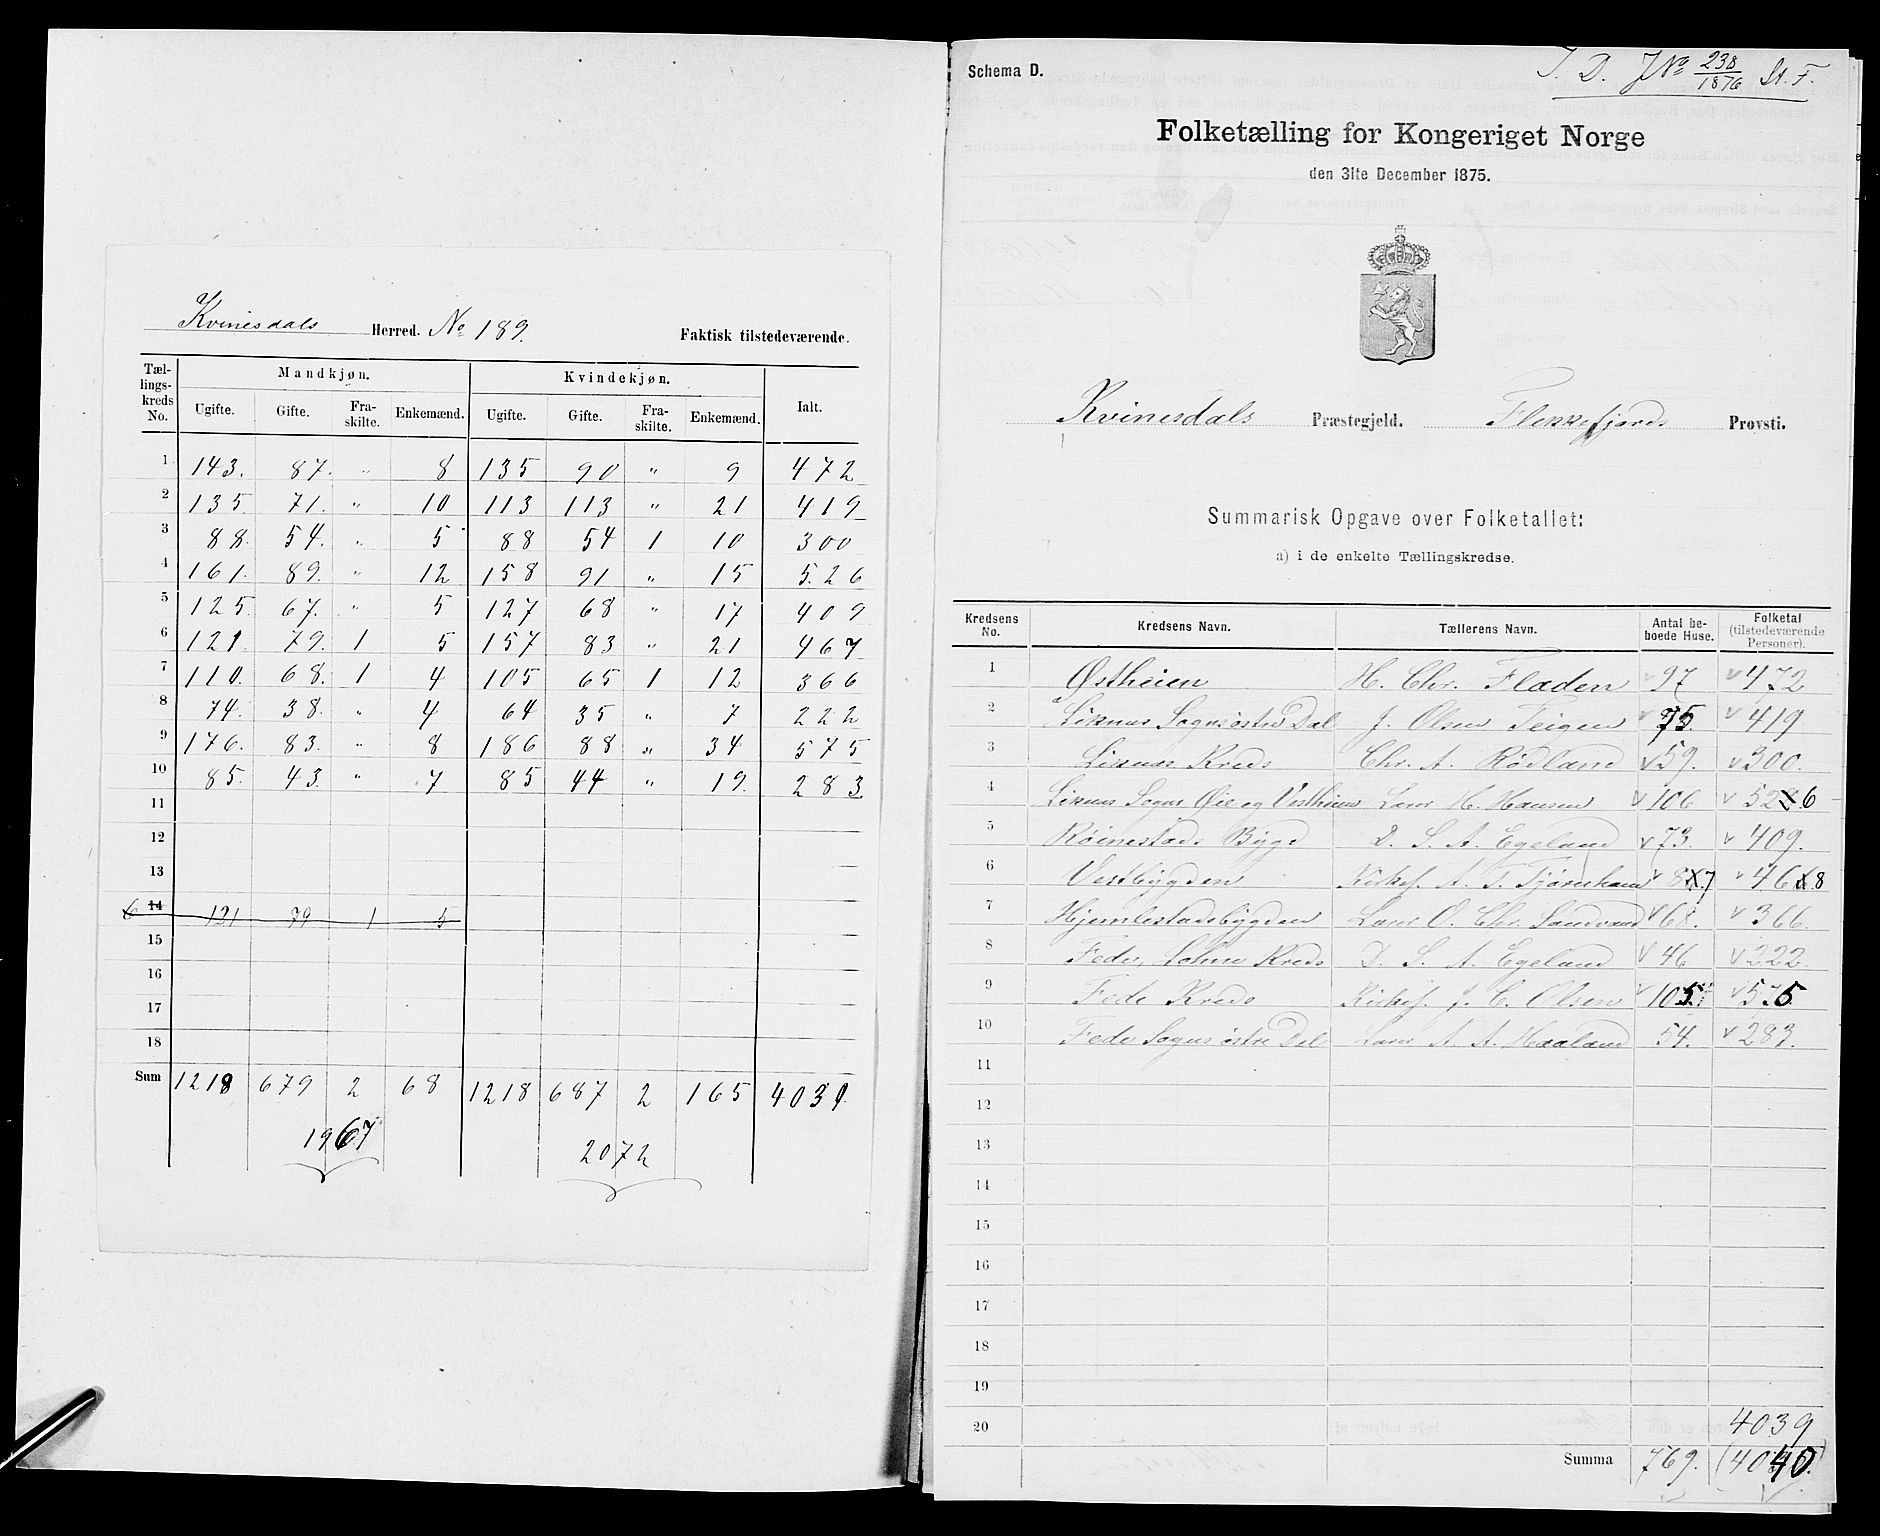 Kvinesdals Herred. No 189. Faktisk tilstedeværende.
Tællingskreds No. Mandkjøn. Kvindekjøn. Ialt.
Ugifte. Gifte. Fraskilte. Enkemænd. Ugifte. Gifte. Fraskilte. Enkemænd.
1 143. 87. " 8 135 90 " 9 472
2 135. 71. " 10 113 113 " 21 419
3 88. 54. " 5 88 54 1 10 300
4 161. 89. " 12 158 91 " 15 526
5 125. 67. " 5 127 68 " 17 409
6 121 79. 1 5 157 83 " 21 467
7 110. 68. 1 4 105 65 1 12 366
8 74. 38. " 4 64 35 " 7 222
9 176. 83. " 8 186 88 " 34 575
10 85. 43. " 7 85 44 " 19. 283
11
12
13
6 14 121 79 1 5
15
16
17
18
Sum 1218 679 2 68 1218 687 2 165 4039
1967 2072
Schema D.
J. D. JNo 238/1876 St. F.
Folketælling for Kongeriget Norge
den 31te December 1875.
Kvinesdals Præstegjeld. Flekkefjords Provsti.
Summarisk Opgave over Folketallet:
a) i de enkelte Tællingskredse.
Kredsens No. Kredsens Navn. Tællerens Navn. Antal beboede Huse. Folketal (tilstedeværende Personer).
1 Østheien H. Chr. Fladen 97 472
2 Liknes Sogns østre Dal J. Olsen Teigen 75. 419
3 Liknes Kreds Chr. A. Rødland 59. 300.
4 Liknes Sogns Øie og Vestheien Lærer H. Hansen 106 526
5 Røinestads Bygd D. S. A. Egeland 73. 409.
6 Vestbygden Kirkes. A. T. 87 468
7 Hjemlestadsbygden Lærer O. Chr. Sandvand 68. 366.
8 Fede, Kreds D. S. A. Egeland 46 222.
9 Fede Kreds Kirkes. J. C. Olsen 105 575
10 Fede Sogns østre Del Lærer A. A. Haaland 54. 283.
11
12
13
14
15
16
17
18
19
20 4039
Summa 769. (4040.)